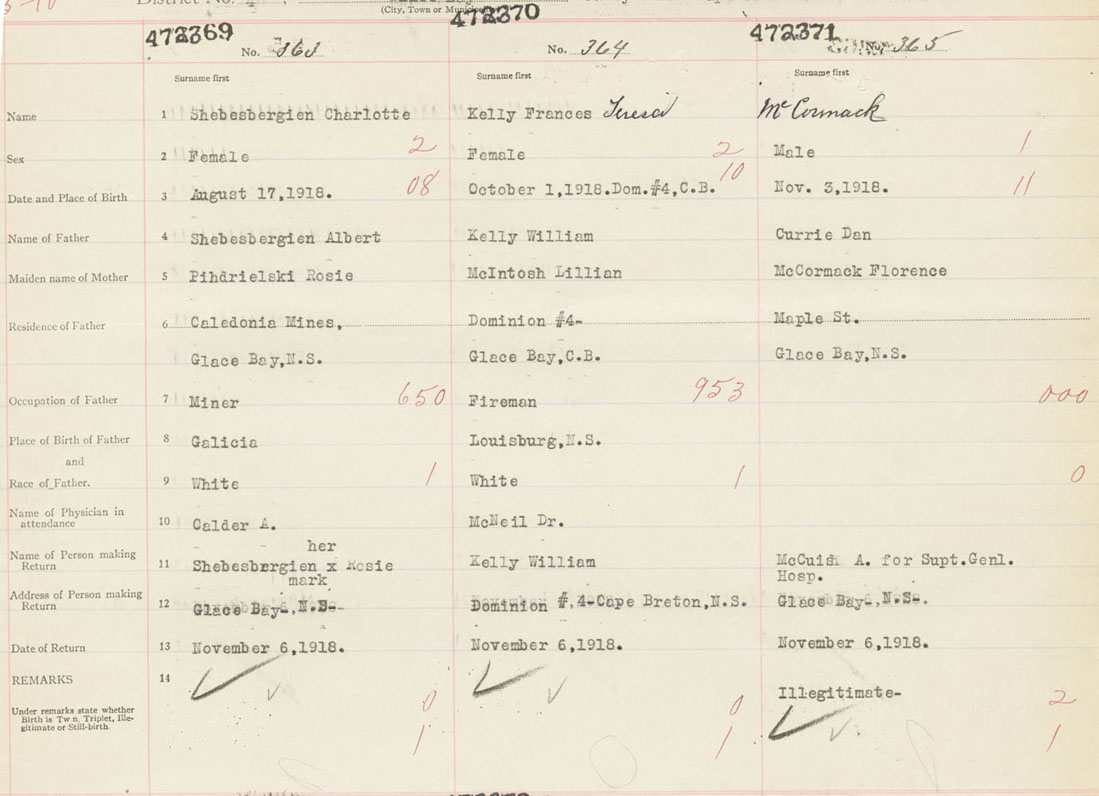 District No. 4,
(City, Town or Munici
472369 472370 472371
No. 363 No. 364 No. 365
Surname first Surname first Surname first
Name 1 Shebesbergien Charlotte Kelly Frances Teresa McCormack
Sex 2 Female 2 Female 2 Male 1
Date and Place of Birth 3 August 17,1918. 08 October 1,1918.Dom.#4,C.B. 10 Nov. 3,1918. 11
Name of Father 4 Shebesbergien Albert Kelly William Currie Dan
Maiden name of Mother 5 Pihdrielski Rosie McIntosh Lillian McCormack Florence
Residence of Father 6 Caledonia Mines, Dominion #4- Maple St.
Glace Bay,N.S. Glace Bay,C.B. Glace Bay,N.S.
Occupation of Father 7 Miner 650 Fireman 953 000
Place of Birth of Father 8 Galicia Louisburg,N.S.
and
Race of Father. 9 White 1 White 1 0
Name of Physician in
attendance 10 Calder A. McNeil Dr.
her
Name of Person making
Return 11 Shebesbergien x Rosie Kelly William McCuish A. for Supt.Genl.
mark Hosp.
Address of Person making
Return 12 Glace Bay-,N.S- Dominion #,4-Cape Breton,N.S. Glace Bay-,N.S-.
Date of Return 13 November 6,1918. November 6,1918. November 6,1918.
REMARKS 14
Illegitimate-
Under remarks state whether
Birth is Tw n, Triplet, Ille-
gitimate or Still-birth
0 0 2
1 1 1